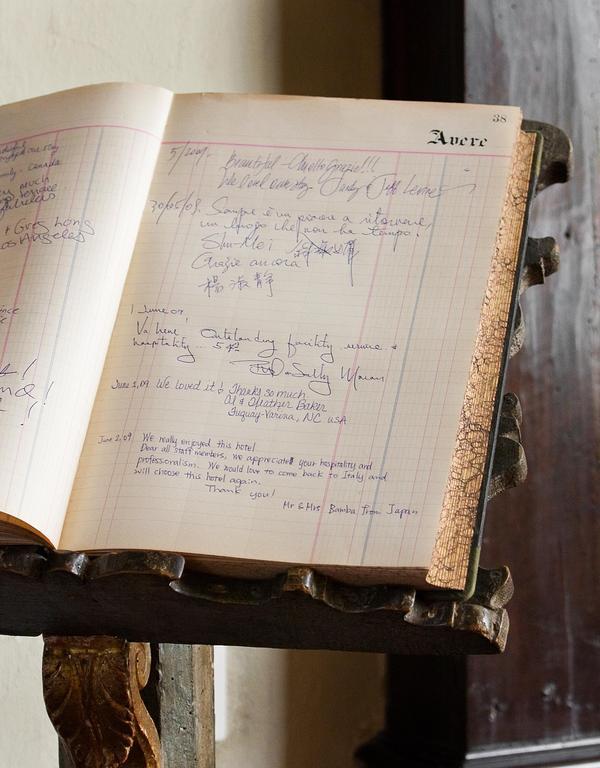 Canada
much
terrace
+ Greg Long
Los Angeles
38
Avere
5/2009. Beautiful - Molto Grazie!!!
We loved our stay - Judy & Jeff
30/05/09. Sempre è un piacere a ritornare,
un luogo che non ha tempo.
Shu-Mei
Grazie ancora
楊淑靜
1 June 09
Va bene! Outstanding facility service &
hospitality... 5
Sally
June 1, 09 We loved it! Thanks so much
Al & Heather Baker
Fuquay-Varina, NC USA
June 2, 09 We really enjoyed this hotel
Dear all staff members, we appreciate your hospitality and
professionalism. We would love to come back to Italy and
will choose this hotel again.
Thank you!
Mr & Mrs Bamba from Japan